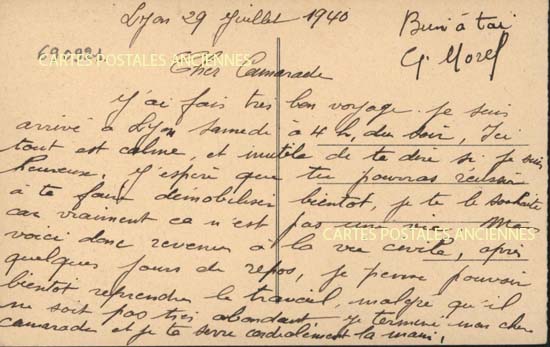 Lyon 29 Juillet 1940
Bien à toi
G. Morel
CARTES POSTALES ANCIENNES
Cher Camarade
J'ai fais très bon voyage. je suis
arrivé à Lyon Samedi à 4 h, du soir, Ici
tout est calme, et inutile de te dire si je suis
heureuse. J'espère que tu pourras réussir
à te faire démobiliser bientôt, je te le souhaite
car vraiment ca n'est pas Me
CARTES POSTALES ANCIENNES
voici donc revenu à la vie civile, après
quelques jours de repos, je pense pouvoir
bientôt reprendre le travail, malgré qu'il
ne soit pas très abondant. je termine mon cher
camarade et je te serre cordialement la main,